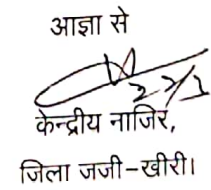 आज्ञा से
केन्द्रीय नाजिर,
जिला जजी-खीरी।